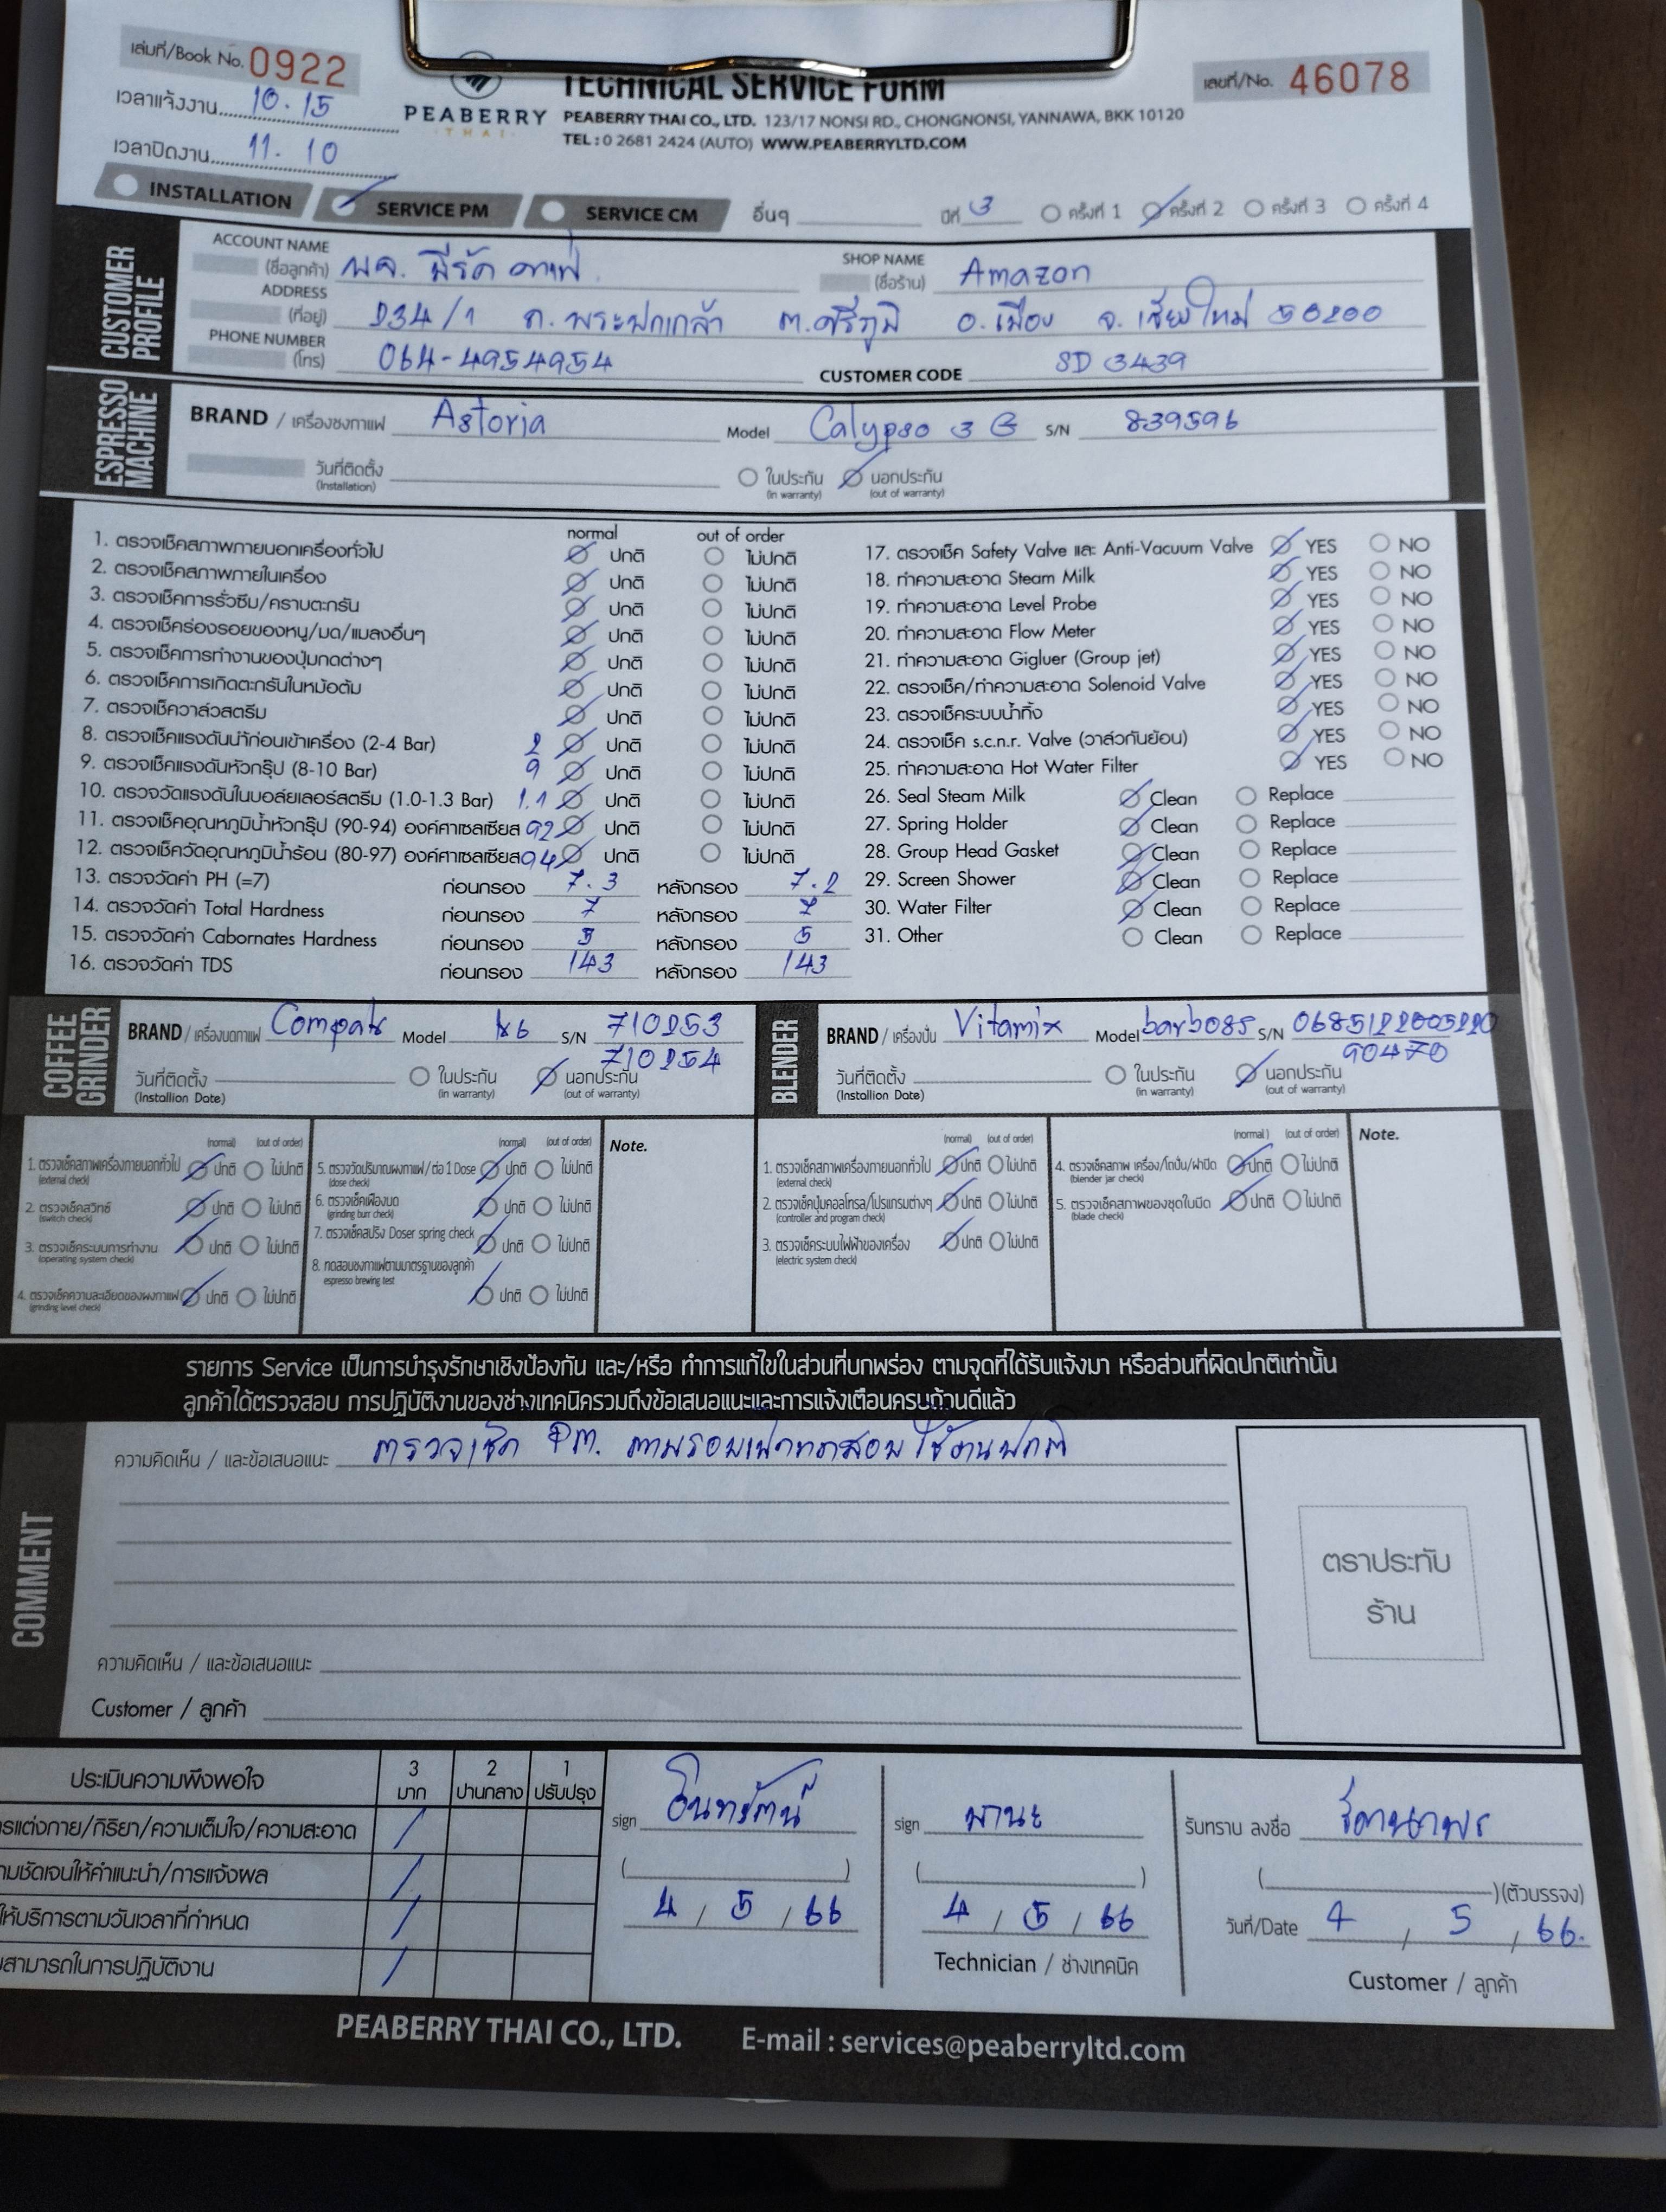 เล่มที่/Book No. 0922
เลขที่/No. 46078
เวลาแจ้งงาน 10.15
เวลาปิดงาน 11.10
PEABERRY
THAI
TECHNICAL SERVICE FORM
PEABERRY THAI CO., LTD. 123/17 NONSI RD., CHONGNONSI, YANNAWA, BKK 10120
TEL : 0 2681 2424 (AUTO) WWW.PEABERRYLTD.COM
INSTALLATION SERVICE PM SERVICE CM อื่นๆ ปีที่ 3 ครั้งที่ 1 ครั้งที่ 2 ครั้งที่ 3 ครั้งที่ 4
CUSTOMER PROFILE
ACCOUNT NAME (ชื่อลูกค้า) หจก. มีรัก คาเฟ่ SHOP NAME (ชื่อร้าน) Amazon
ADDRESS (ที่อยู่) 234/1 ถ.พระปกเกล้า ต.ศรีภูมิ อ.เมือง จ.เชียงใหม่ 50200
PHONE NUMBER (โทร) 064-4954954 CUSTOMER CODE SD 3439
ESPRESSO MACHINE
BRAND / เครื่องชงกาแฟ Astoria Model Calypso 3 G S/N 839596
วันที่ติดตั้ง (Installation) ในประกัน (in warranty) นอกประกัน (out of warranty)
normal out of order
1. ตรวจเช็คสภาพภายนอกเครื่องทั่วไป ปกติ ไม่ปกติ
2. ตรวจเช็คสภาพภายในเครื่อง ปกติ ไม่ปกติ
3. ตรวจเช็คการรั่วซึม/คราบตะกรัน ปกติ ไม่ปกติ
4. ตรวจเช็คร่องรอยของหนู/มด/แมลงอื่นๆ ปกติ ไม่ปกติ
5. ตรวจเช็คการทำงานของปุ่มกดต่างๆ ปกติ ไม่ปกติ
6. ตรวจเช็คการเกิดตะกรันในหม้อต้ม ปกติ ไม่ปกติ
7. ตรวจเช็ควาล์วสตรีม ปกติ ไม่ปกติ
8. ตรวจเช็คแรงดันน้ำก่อนเข้าเครื่อง (2-4 Bar) 2 ปกติ ไม่ปกติ
9. ตรวจเช็คแรงดันหัวกรุ๊ป (8-10 Bar) 9 ปกติ ไม่ปกติ
10. ตรวจวัดแรงดันในบอล์ยเลอร์สตรีม (1.0-1.3 Bar) 1.1 ปกติ ไม่ปกติ
11. ตรวจเช็คอุณหภูมิน้ำหัวกรุ๊ป (90-94) องศ์คาเซลเซียส 92 ปกติ ไม่ปกติ
12. ตรวจเช็ควัดอุณหภูมิน้ำร้อน (80-97) องศ์คาเซลเซียส 94 ปกติ ไม่ปกติ
13. ตรวจวัดค่า PH (=7) ก่อนกรอง 7.3 หลังกรอง 7.2
14. ตรวจวัดค่า Total Hardness ก่อนกรอง 7 หลังกรอง 7
15. ตรวจวัดค่า Cabornates Hardness ก่อนกรอง 5 หลังกรอง 5
16. ตรวจวัดค่า TDS ก่อนกรอง 143 หลังกรอง 143
17. ตรวจเช็ค Safety Valve และ Anti-Vacuum Valve YES NO
18. ทำความสะอาด Steam Milk YES NO
19. ทำความสะอาด Level Probe YES NO
20. ทำความสะอาด Flow Meter YES NO
21. ทำความสะอาด Gigluer (Group jet) YES NO
22. ตรวจเช็ค/ทำความสะอาด Solenoid Valve YES NO
23. ตรวจเช็คระบบน้ำทิ้ง YES NO
24. ตรวจเช็ค s.c.n.r. Valve (วาล์วกันย้อน) YES NO
25. ทำความสะอาด Hot Water Filter YES NO
26. Seal Steam Milk Clean Replace
27. Spring Holder Clean Replace
28. Group Head Gasket Clean Replace
29. Screen Shower Clean Replace
30. Water Filter Clean Replace
31. Other Clean Replace
COFFEE GRINDER
BRAND / เครื่องบดกาแฟ Compak Model k6 S/N 710253
710254
วันที่ติดตั้ง (Installion Date) ในประกัน (in warranty) นอกประกัน (out of warranty)
BLENDER
BRAND / เครื่องปั่น Vitamix Model S/N
90470
วันที่ติดตั้ง (Installion Date) ในประกัน (in warranty) นอกประกัน (out of warranty)
(normal) (out of order)
1. ตรวจเช็คสภาพเครื่องภายนอกทั่วไป (external check) ปกติ ไม่ปกติ
2. ตรวจเช็คสวิทซ์ (switch check) ปกติ ไม่ปกติ
3. ตรวจเช็คระบบการทำงาน (operating system check) ปกติ ไม่ปกติ
4. ตรวจเช็คความละเอียดของผงกาแฟ (grinding level check) ปกติ ไม่ปกติ
(normal) (out of order)
5. ตรวจวัดปริมาณผงกาแฟ/ต่อ 1 Dose (dose check) ปกติ ไม่ปกติ
6. ตรวจเช็คเฟืองบด (grinding burr check) ปกติ ไม่ปกติ
7. ตรวจเช็คสปริง Doser spring check ปกติ ไม่ปกติ
8. ทดสอบชงกาแฟตามมาตรฐานของลูกค้า espresso brewing test ปกติ ไม่ปกติ
Note.
(normal) (out of order)
1. ตรวจเช็คสภาพเครื่องภายนอกทั่วไป (external check) ปกติ ไม่ปกติ
2. ตรวจเช็คปุ่มคอลโทรล/โปรแกรมต่างๆ (controller and program check) ปกติ ไม่ปกติ
3. ตรวจเช็คระบบไฟฟ้าของเครื่อง (electric system check) ปกติ ไม่ปกติ
(normal) (out of order)
4. ตรวจเช็คสภาพ เครื่อง/โถปั่น/ฝาปิด (blender jar check) ปกติ ไม่ปกติ
5. ตรวจเช็คสภาพของชุดใบมีด (blade check) ปกติ ไม่ปกติ
Note.
รายการ Service เป็นการบำรุงรักษาเชิงป้องกัน และ/หรือ ทำการแก้ไขในส่วนที่บกพร่อง ตามจุดที่ได้รับแจ้งมา หรือส่วนที่ผิดปกติเท่านั้น
ลูกค้าได้ตรวจสอบ การปฏิบัติงานของช่างเทคนิครวมถึงข้อเสนอแนะและการแจ้งเตือนครบถ้วนดีแล้ว
COMMENT
ความคิดเห็น / และข้อเสนอแนะ ตรวจเช็ค PM. ตามรอบเปิดทดสอบใช้งานปกติ
ตราประทับ
ร้าน
ความคิดเห็น / และข้อเสนอแนะ
Customer / ลูกค้า
ประเมินความพึงพอใจ 3 มาก 2 ปานกลาง 1 ปรับปรุง
รแต่งกาย/กิริยา/ความเต็มใจ/ความสะอาด
มชัดเจนให้คำแนะนำ/การแจ้งผล
ให้บริการตามวันเวลาที่กำหนด
สามารถในการปฏิบัติงาน
sign อินทรัตน์
4 / 5 / 66
sign มานะ
4 / 5 / 66
Technician / ช่างเทคนิค
รับทราบ ลงชื่อ
(ตัวบรรจง)
วันที่/Date 4 / 5 / 66.
Customer / ลูกค้า
PEABERRY THAI CO., LTD. E-mail : services@peaberryltd.com